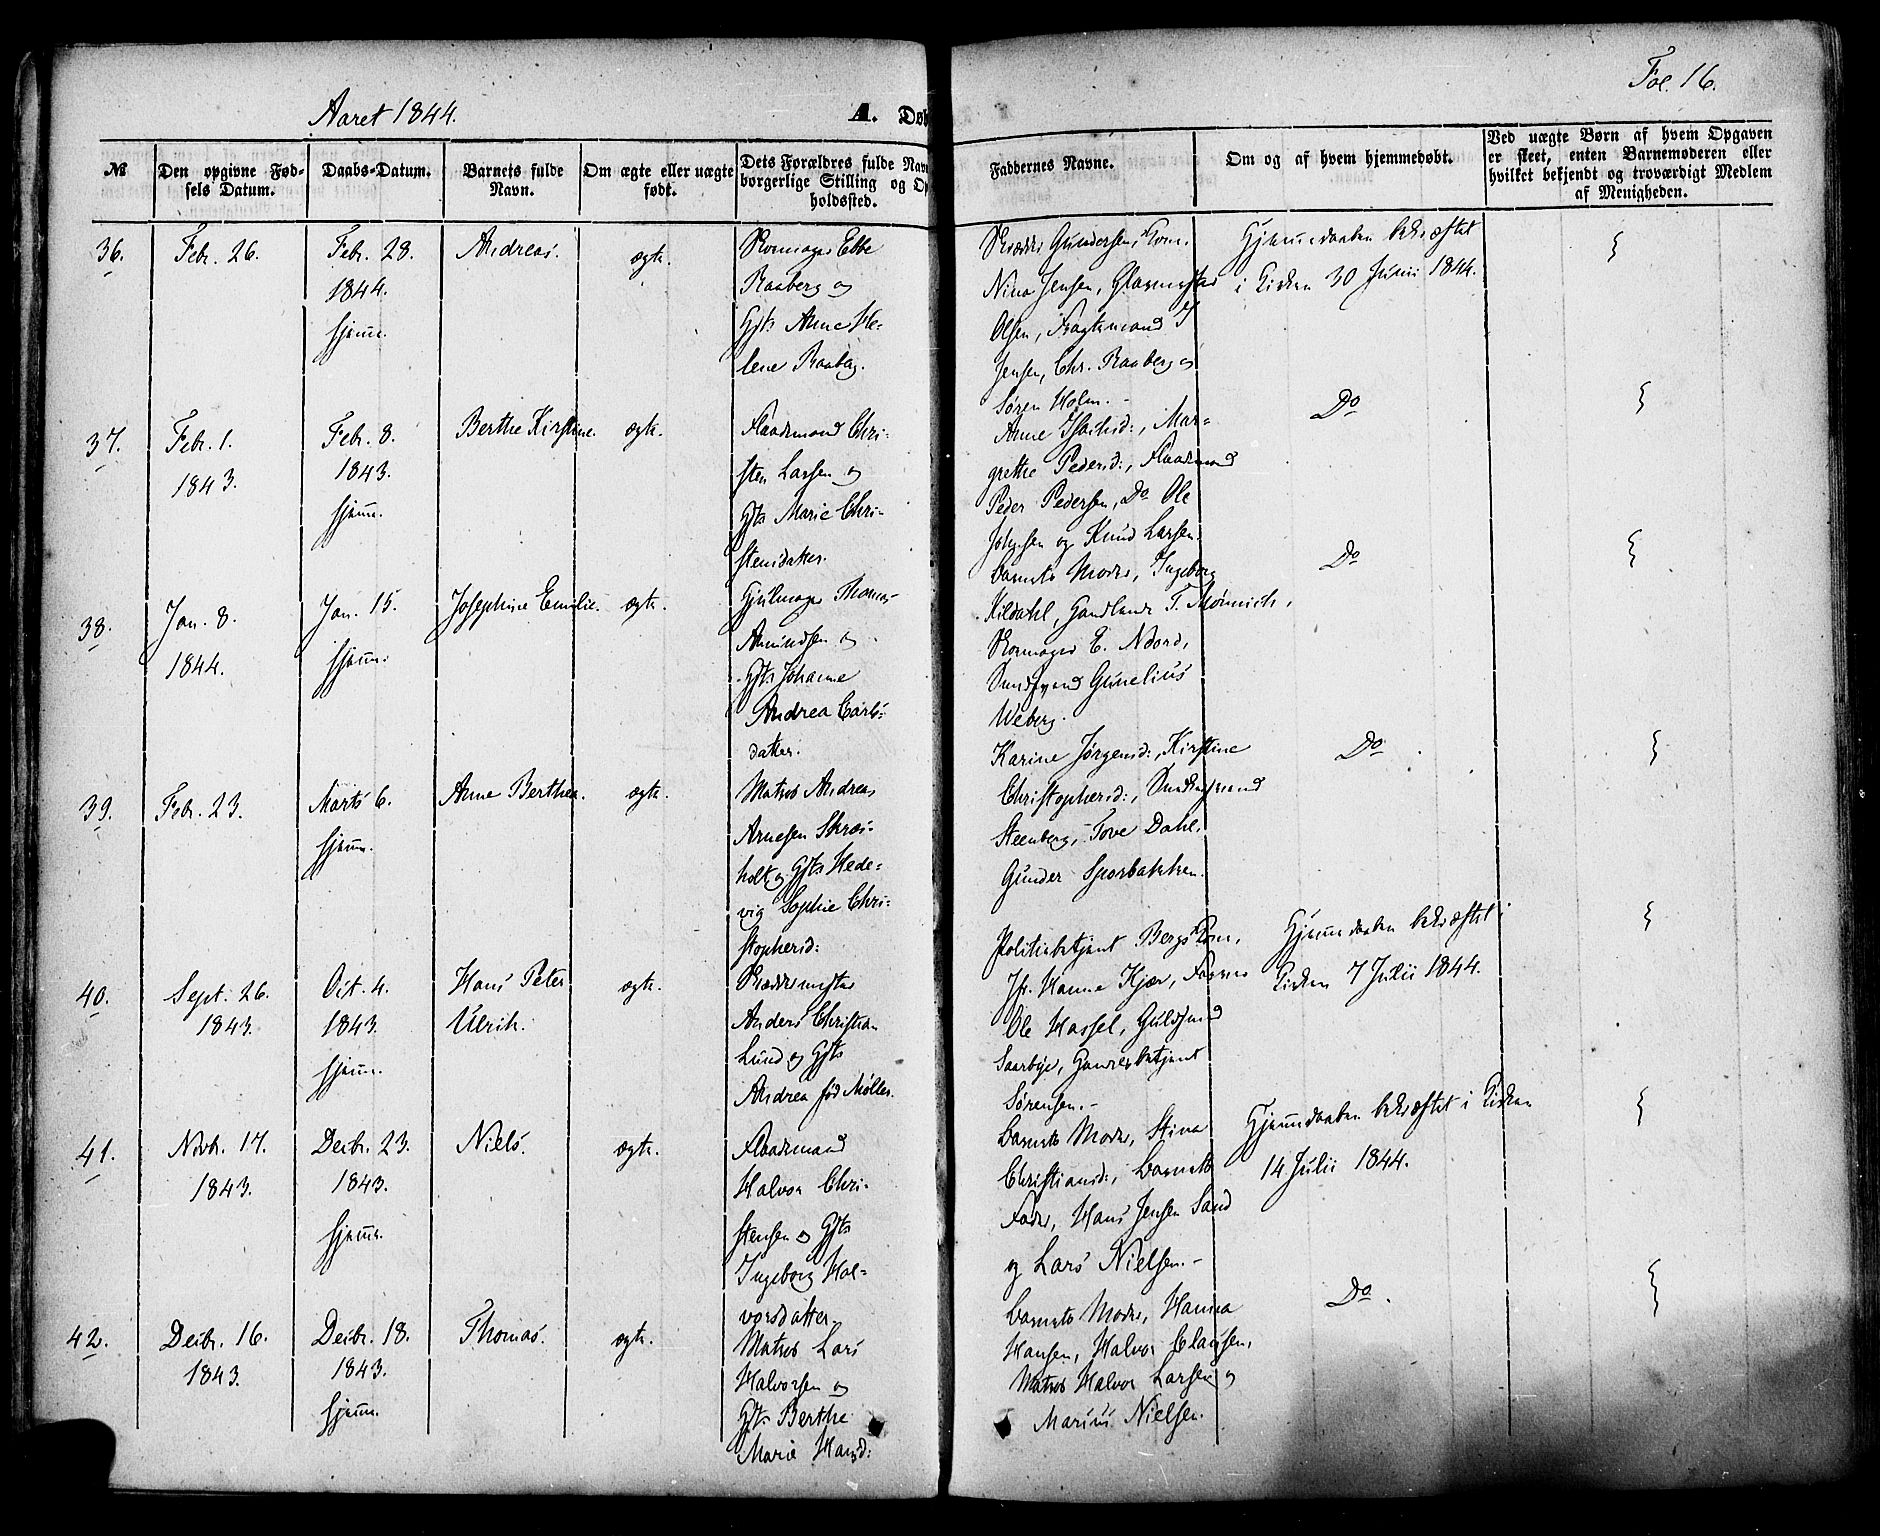 Aaret 1844.
A. Døb
Fol. 16.
№
Den opgivne Fød-
sels Datum.
Daabs-Datum.
Barnets fulde
Navn.
Om ægte eller uægte
født.
Dets Forældres fulde Nav
borgerlige Stilling og Op
holdssted.
Faddernes Navne.
Om og af hvem hjemmedøbt.
Ved uægte Børn af hvem Opgaven
er skeet, enten Barnemoderen eller
hvilket bekjendt og troværdigt Medlem
af Menigheden.
36.
Febr. 26.
Febr. 28.
1844.
hjemme.
Andreas.
ægte.
Skomager Ebbe
Raaberg og
Gjts Anne He-
lene Raaberg.
Skræder Gundersens Kone.
Nina Jensen, Glarmester
Olsen, Fragtemand
Jensen, Chr. Raaberg og
Søren Holm.-
Hjemmedaaben bekræftet
i Kirken 30 Junii 1844.
37.
Febr. 1.
1843.
Febr. 8.
1843.
hjemme.
Berthe Kirstine.
ægte.
Flaademand Chri-
sten Larsen og
Gjts Marie Chri-
stensdatter.
Anne Mar-
grethe Pedersd:, Flaademand
Peder Pedersen, Do Ole
og Knud Larsen.
Do
38.
Jan. 8.
1844.
Jan. 15.
hjemme.
Josephine Emilie.
ægte.
Hjulmager Thomas
Amundsen og
Gjts Johanne
Andrea Carls-
datter.
Barnets Moder, Ingeborg
Kildahl, T. Mønnich,
Skomager E. Noord,
Gunelius
Weberg.
Do
39.
Febr. 23.
Marts 6.
hjemme.
Anne Berthea.
ægte.
Matros Andreas
Arnesen Skræs-
holt og Gjts Hede-
vig Sophie Chri-
stophersd:
Karine Jørgensd:, Kirstine
Christophersd:,
Steenberg, Tove Dahl,
Gunder Sporbakken.
Do
40.
Sept. 26.
1843.
Oct. 4.
1843.
hjemme.
Hans Peter
Ulrik.
ægte.
Skræddermester
Anders Christian
Lund og Gjts
Andrea fød Møller.
Politiebetjent Bergs Kone,
Jfr. Hanne Kjær, Farver
Ole Hassel, Guldsmed
Saarbye, Handelsbetjent
Sørensen.-
Hjemmedaaben bekræftet i
Kirken 7 Julii 1844.
41.
Novbr. 17.
1843.
Decbr. 23.
1843.
hjemme.
Niels.
ægte.
Flaademand
Halvor Chri-
stensen og Gjts
Ingeborg Hal-
vorsdatter.
Barnets Moder, Stina
Christiansd:, Barnets
Fader, Hans Jensen Sand
og Lars Nielsen.-
Hjemmedaaben bekræftet i Kirken
14 Julii 1844.
42.
Decbr. 16.
1843.
Decbr. 18.
1843.
hjemme.
Thomas.
ægte.
Matros Lars
Halvorsen og
Gjts Berthe
Marie Hansd:
Barnets Moder, Hanna
Hansen, Halvor Claussen,
Matros Halvor Larsen og
Marius Nielsen.
Do.